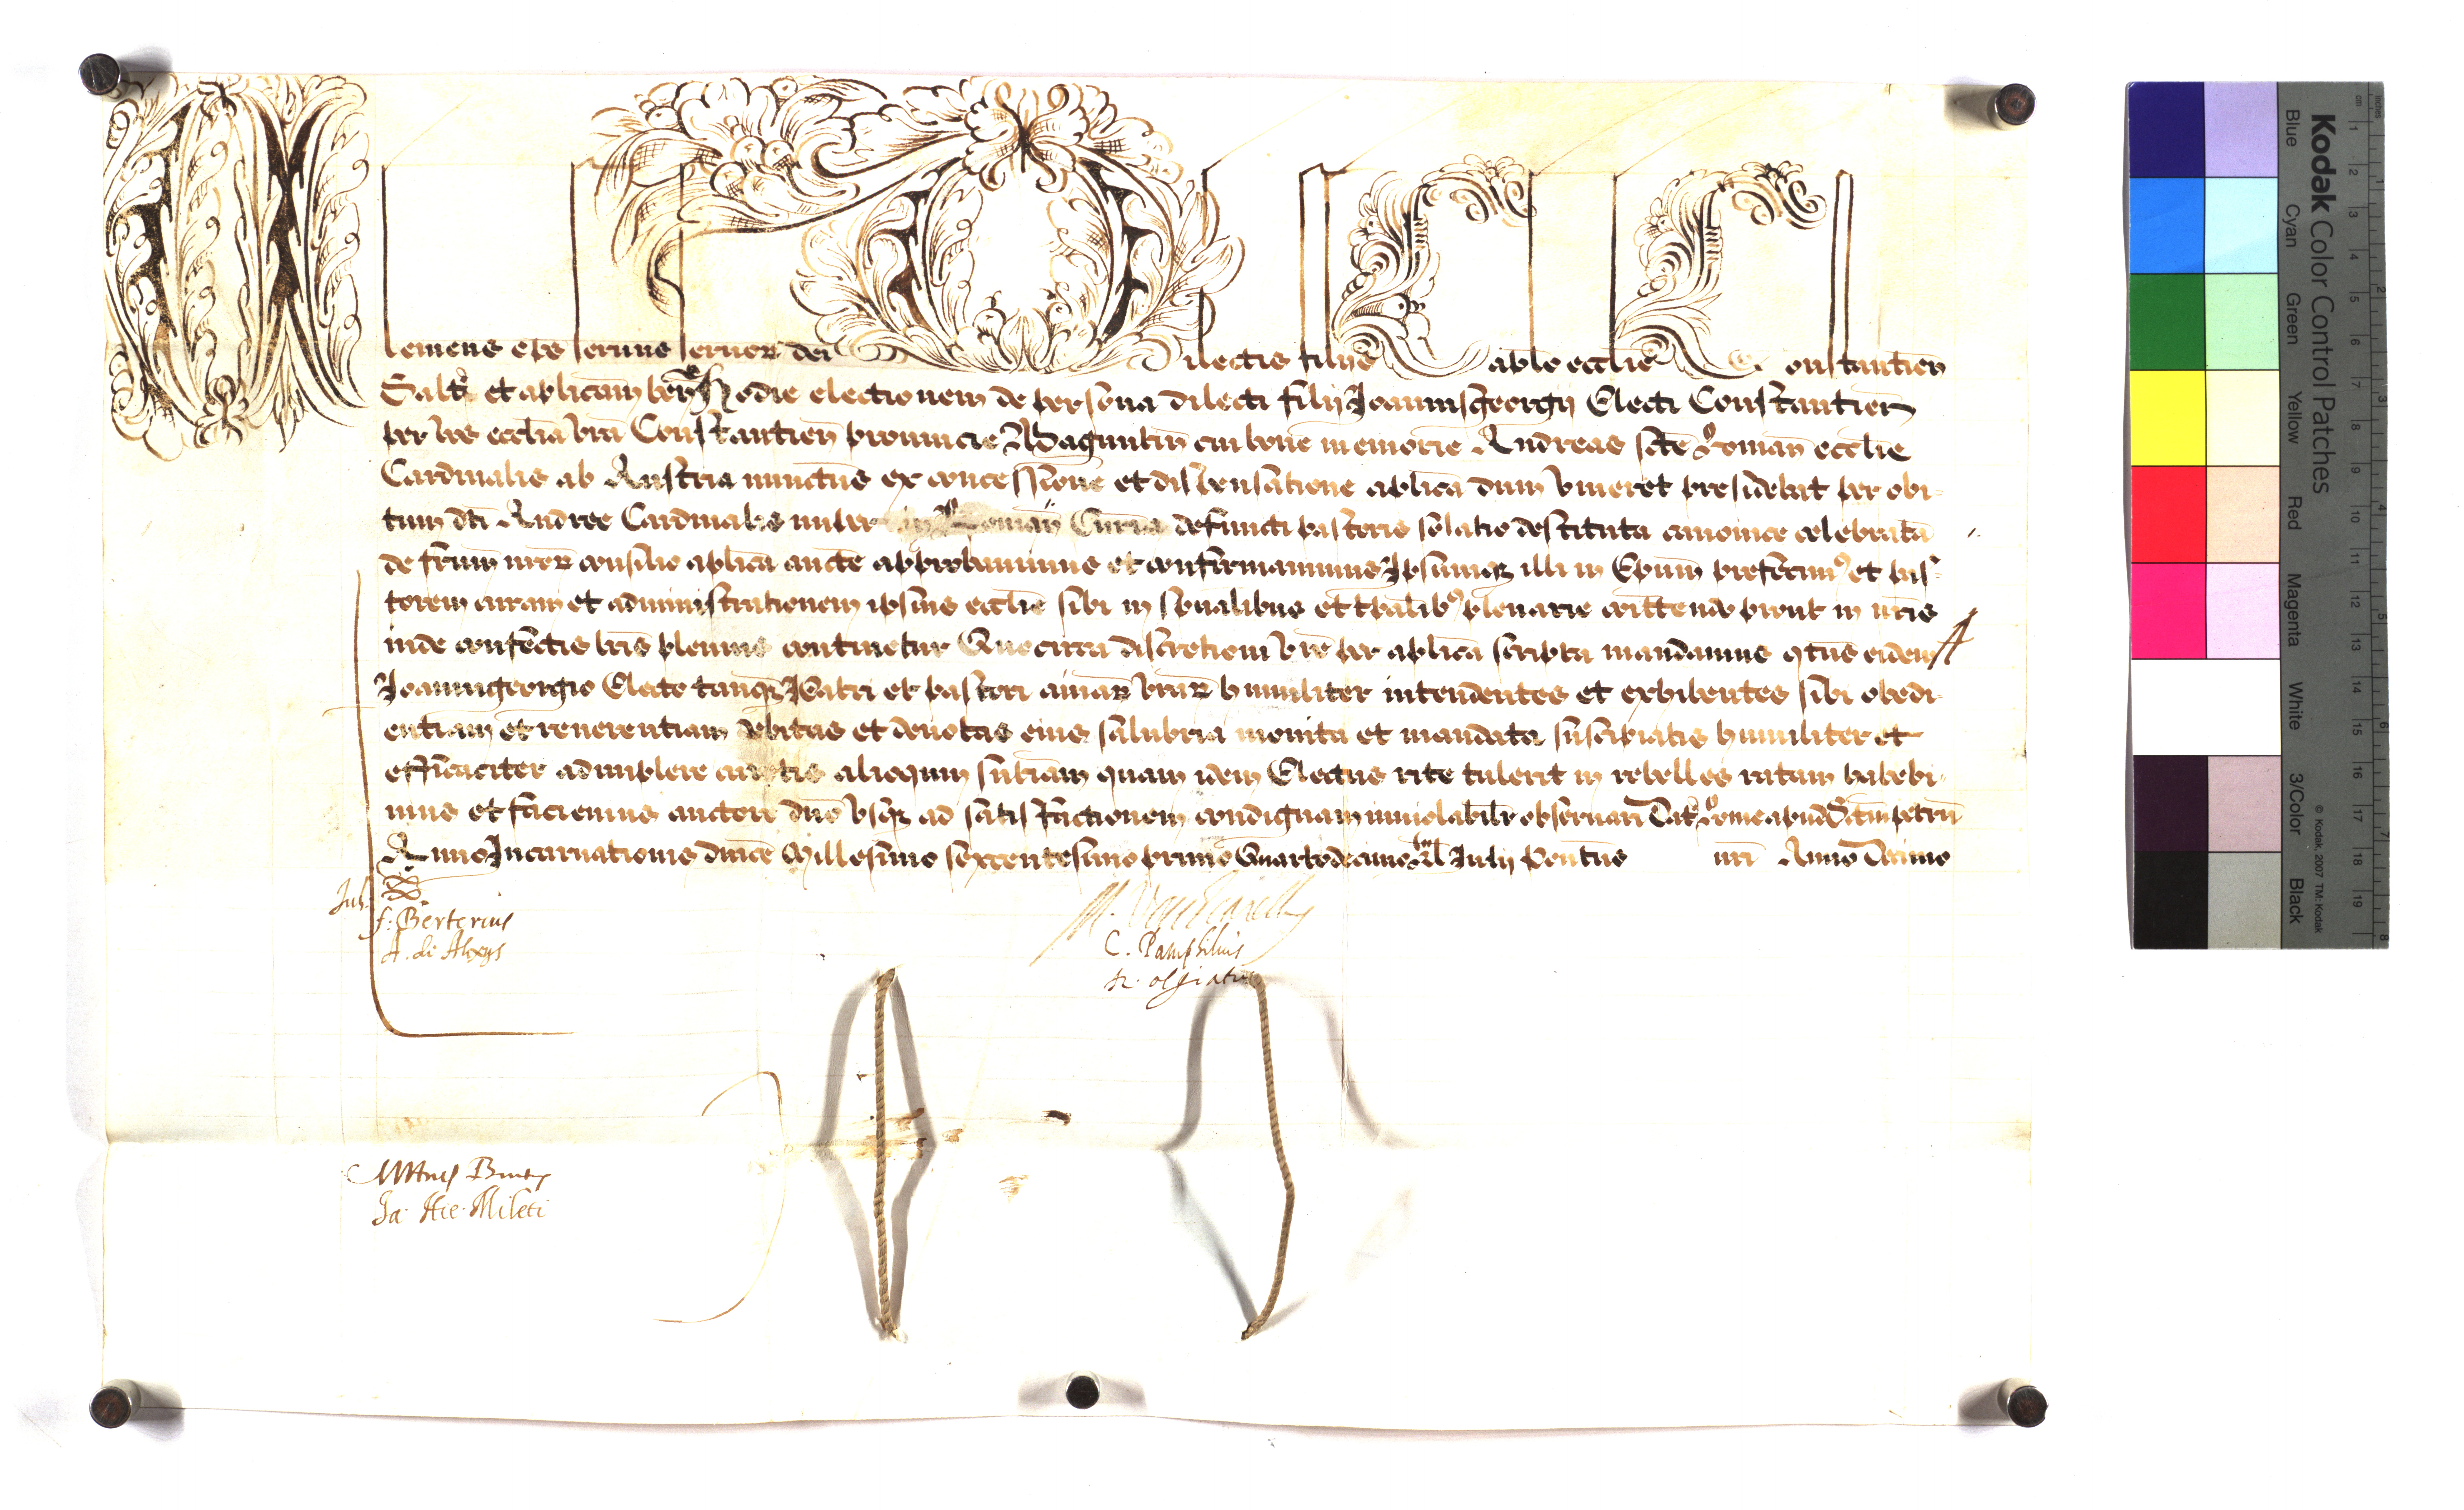 Clemens eps seruus seruor dei Dilectis filiis Caplo ecclie Constantien
Saltm et aplicam ben Hodie electionem de persona dilecti filij Joannisgeorgij Electi Constantien
per vos ecclia vra Constantien prouincie Maguntin cui bone memorie Andreas scte Roman ecclie
Cardinalis ab Austria nunctus ex concessione et dispensatione aplica dum viueret presidebat per obi-
tum dti Andree Cardinalis nuper in Roman Curia defuncti pastoris solatio destituta canonice celebrata
de frum nror consilio aplica aucte approbauimus et confirmauimus Ipsumq illi in Epum prefecimus et pas-
torem curam et administrationem ipsius ecclie sibi in spualibus et tpalibus plenarie comittendo prout in nris
inde confectis lris plenius continetur Quocirca discretioni vre per aplica scripta mandamus qtus eidem
Joannigeorgio Electo tanq Patri et pastori aiarum vrar humiliter intendentes et exhibentes sibi obedi-
entiam et reuerentiam debitas et deuotas eius salubria monita et mandata suscipiatis humiliter et
efficaciter adimplere curetis alioquin sntiam quam idem Electus rite tulerit in rebelles ratam habebi-
mus et faciemus auctore dno vsq ad satisfactionem condignam inuiolabilr obseruari Dat Rome apud S tum petrum
Anno Incarnationis dnice Millesimo sexcentesimo primo Quartodecimo kal Julij Pontus nri Anno Decimo
Jul.
f: Berterius
A. de Alexys
C. Pamphilius
H. olgiatus
Ja. Hie. Mileti
Kodak Color Control Patches
Blue Cyan Green Yellow Red Magenta White 3/Color Black
© Kodak, 2007 TM: Kodak
inches 1 2 3 4 5 6 7 8
cm 1 2 3 4 5 6 7 8 9 10 11 12 13 14 15 16 17 18 19